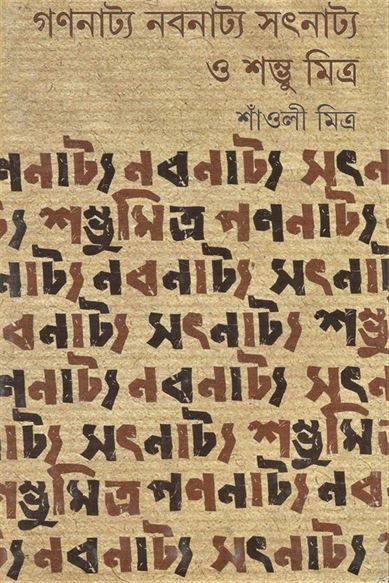 গণনাট্য নবনাট্য সৎনাট্য
ও শম্ভু মিত্র
শাঁওলী মিত্র
ণনাট্য নবনাট্য সৎন
ট্য শম্ভুমিত্র গণনাট্য
নাট্য নবনাট্য সৎনা
নবনাট্য সৎনাট্য শম্ভু
ণনাট্য নবনাট্য সৎন
ট্য সৎনাট্য শম্ভুমি
শম্ভুমিত্র গণনাট্য নব
নবনাট্য সৎনাট্য